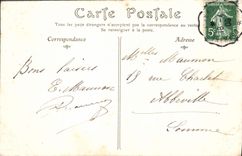 Carte Postale
Tous les pays étrangers n'acceptent pas la correspondance au recto.
Se renseigner à la poste.
Correspondance
Adresse
Bons baisers
E. Maumon
Mlles Maumon
13 rue
Abbeville
Somme